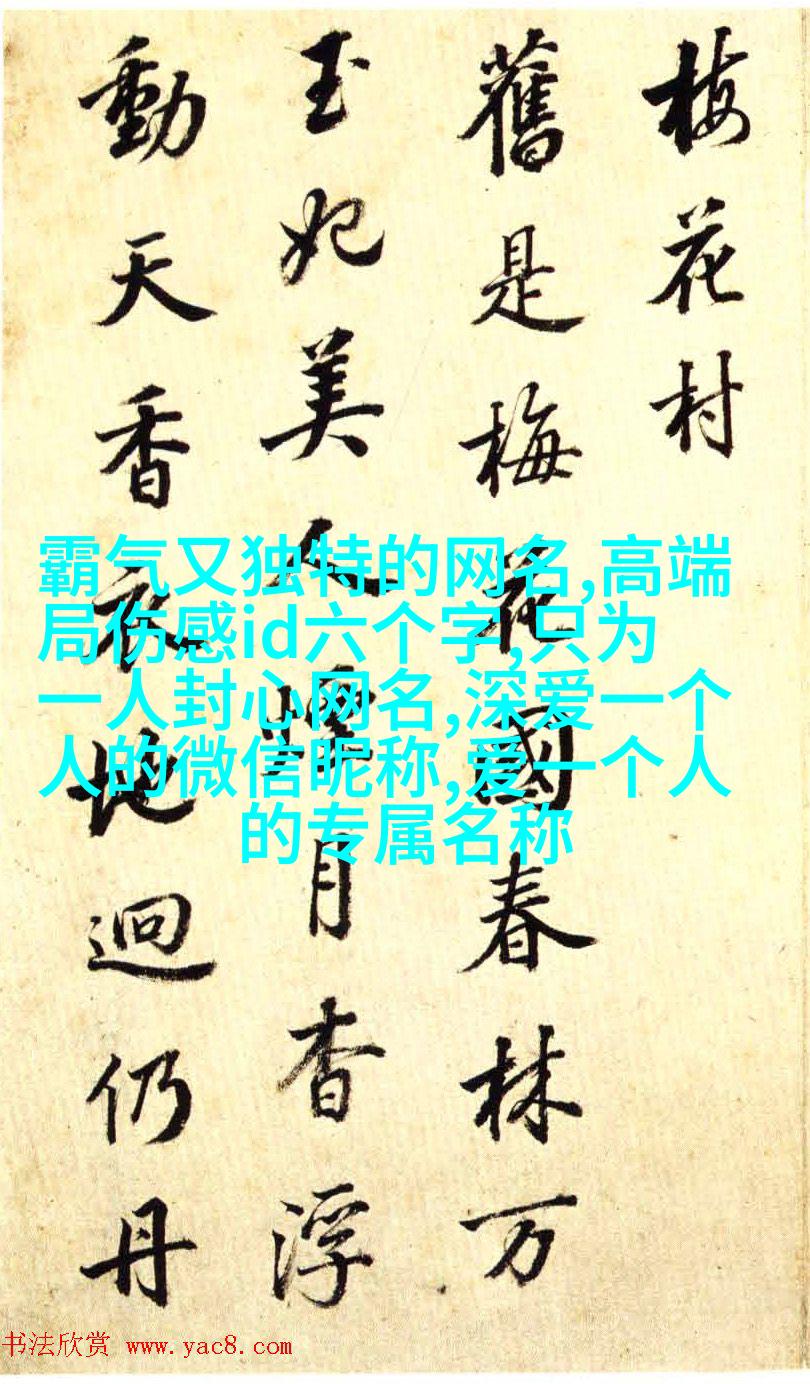 梅花村
舊是梅花國春林万
玉妃美人耀月杳浮
動天香衣地迥仍丹
霸气又独特的网名,高端
局伤感id六个字,只为
一人封心网名,深爱一个
人的微信昵称,爱一个人
的专属名称
书法欣赏 www.yac8.com